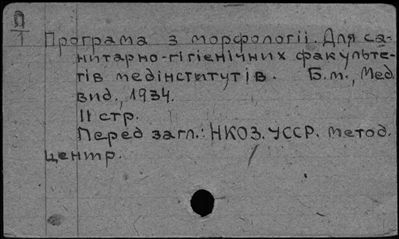 П
1
Програма з морфології. Для са-
нитарно-гігієнічних факульте-
тів медінститутів. Б.м., Мед.
вид., 1934.
11 стр.
Перед загл.: НКОЗ. УССР. Метод.
центр.